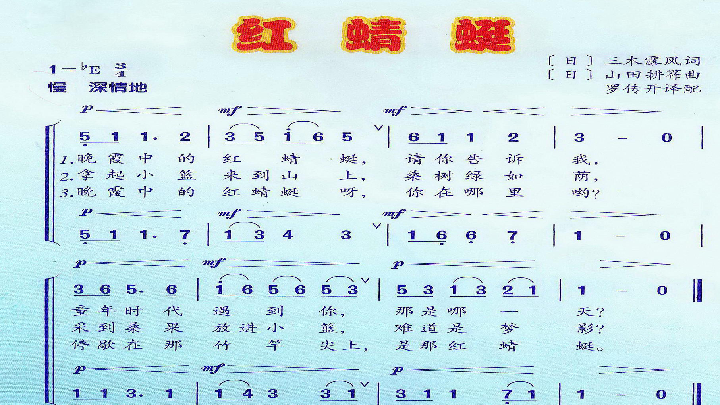 红 蜻 蜓
1=♭E 3/4
〔日〕三木露风词
〔日〕山田耕筰曲
慢 深情地
罗传开译配
p mf mf
5 1 1. 2 | 3 5 1 6 5 | 6 1 1 2 | 3 - 0
1.晚霞中的 红 蜻 蜓, 请你告诉 我,
2.拿起小篮 来到山 上, 桑树绿如 荫,
3.晚霞中的 红蜻蜓 呀, 你在哪里 哟?
p mf mf
5 1 1. 7 | 1 3 4 3 | 1 6 6 7 | 1 - 0
p mf p
3 6 5. 6 | 1 6 5 6 5 3 | 5 3 1 3 2 1 | 1 - 0
童年时代 遇 到 你, 那是哪 一 天?
采到桑果 放进小 篮, 难道是 梦 影?
停歇在那 竹 竿 尖上, 是那红 蜻 蜓。
p mf p
1 1 3. 1 | 1 4 3 3 3 1 | 3 1 1 7 1 | 1 - 0